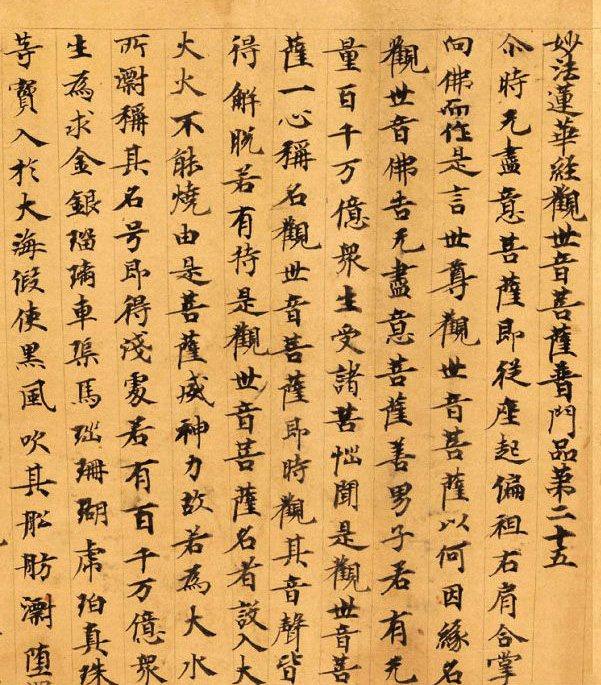 妙法蓮華経觀世音菩薩普門品第二十五
尒時无盡意菩薩即從座起偏袒右肩合掌
向佛而作是言世尊觀世音菩薩以何因緣名
觀世音佛告无盡意菩薩善男子若有无
量百千万億衆生受諸苦惱聞是觀世音菩
薩一心稱名觀世音菩薩即時觀其音聲皆
得解脫若有持是觀世音菩薩名者設入大
火火不能燒由是菩薩威神力故若為大水
所漂稱其名号即得淺處若有百千万億衆
生為求金銀瑠璃車渠馬瑙珊瑚虎珀真珠
等寶入於大海假使黒風吹其舩舫漂堕